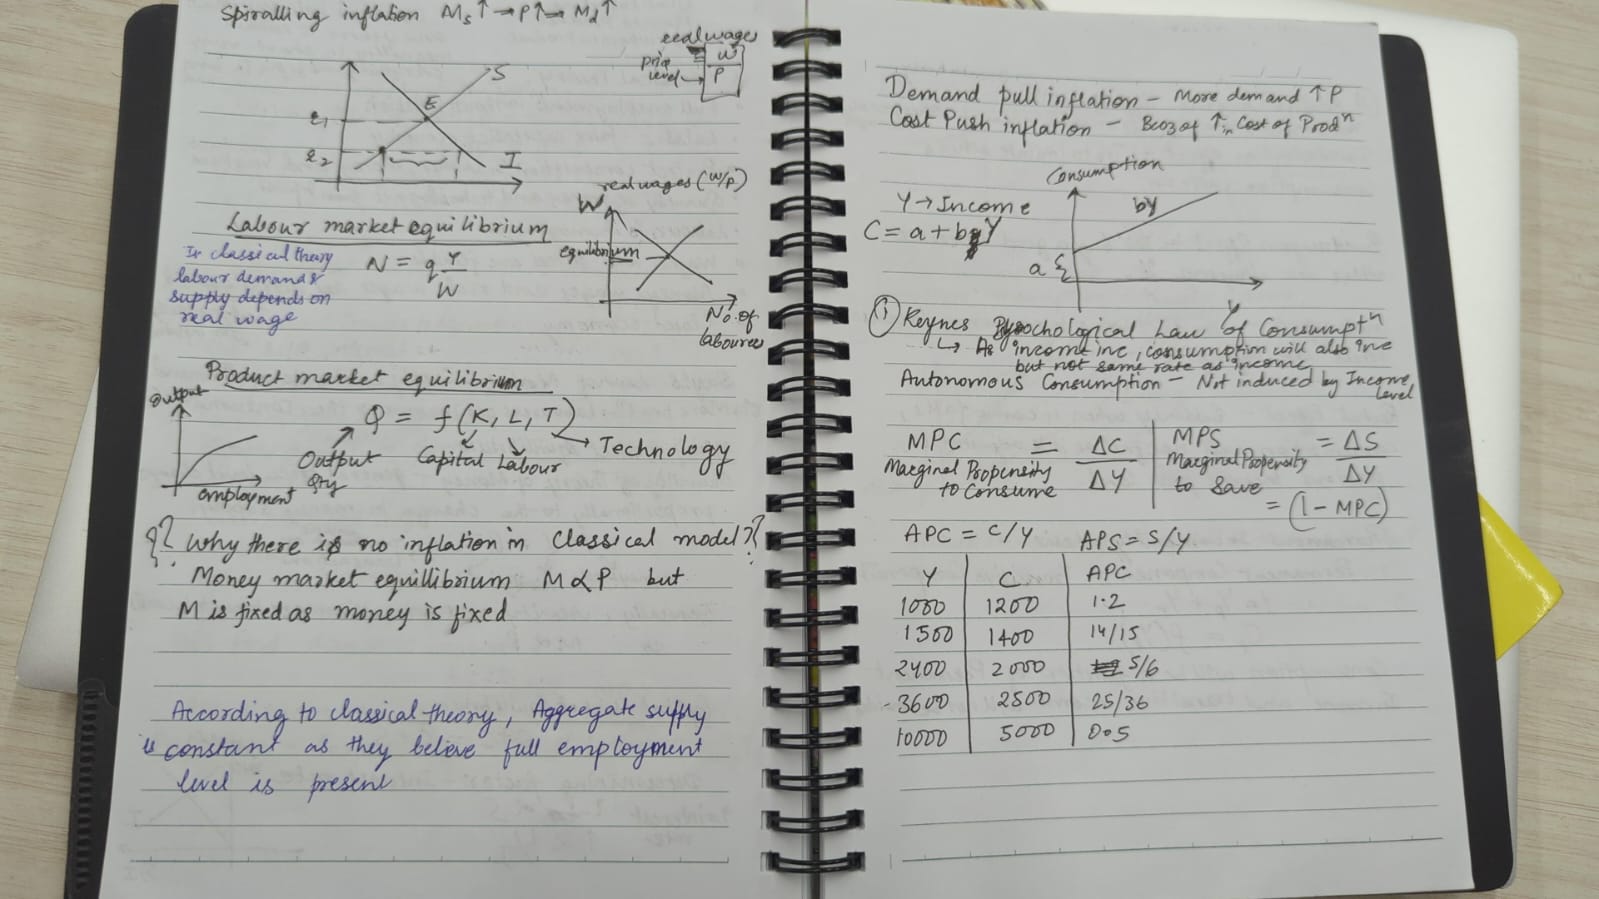 Spiralling inflation Ms↑ → P↑ → Md↑
real wages
W
P
price level →
S
E
r1
r2
I
real wages (W/P)
W
equilibrium
No. of labourers
Labour market equilibrium
In classical theory
labour demand &
supply depends on
real wage
N = q Y/W
Product market equilibrium
Output
employment
Q = f(K, L, T)
Output Qty
Capital
Labour
→ Technology
?? Why there is no inflation in Classical model??
Money market equillibrium M α P but
M is fixed as money is fixed
According to classical theory, Aggregate supply
is constant as they believe full employment
level is present
Demand pull inflation – More demand ↑ P
Cost Push inflation – Bcoz of ↑ in Cost of Prodⁿ
Consumption
by
a
Y
Y → Income
C = a + bY
① Keynes Psychological Law of Consumptⁿ
↳ As income inc, consumption will also inc
but not same rate as income
Autonomous Consumption – Not induced by Income level
MPC = ΔC/ΔY
Marginal Propensity
to Consume
MPS = ΔS/ΔY
Marginal Propensity
to Save
= (1 – MPC)
APC = C/Y APS = S/Y
Y C APC
1000 1200 1.2
1500 1400 14/15
2400 2000 5/6
3600 2500 25/36
10000 5000 0.5